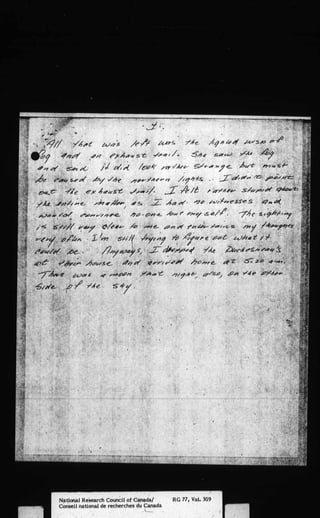 All that was left was the lighted version of
fog and an exhaust trail. She saw the fog
and said, it did look rather strange but must
be caused by the northern lights. I didn't point
out the exhaust trail. I felt rather stupid about
the entire matter as I had no witnesses and
would convince no-one but myself. The sighting
is still very clear to me and enters my thoughts
very often. I'm still trying to figure out what it
could be. Anyways, I dropped the
at their house and arrived home at 5:20 a.m.
There was a moon that night, also, on the other
side of the sky.
National Research Council of Canada/
Conseil national de recherches du Canada
RG 77, Vol. 309